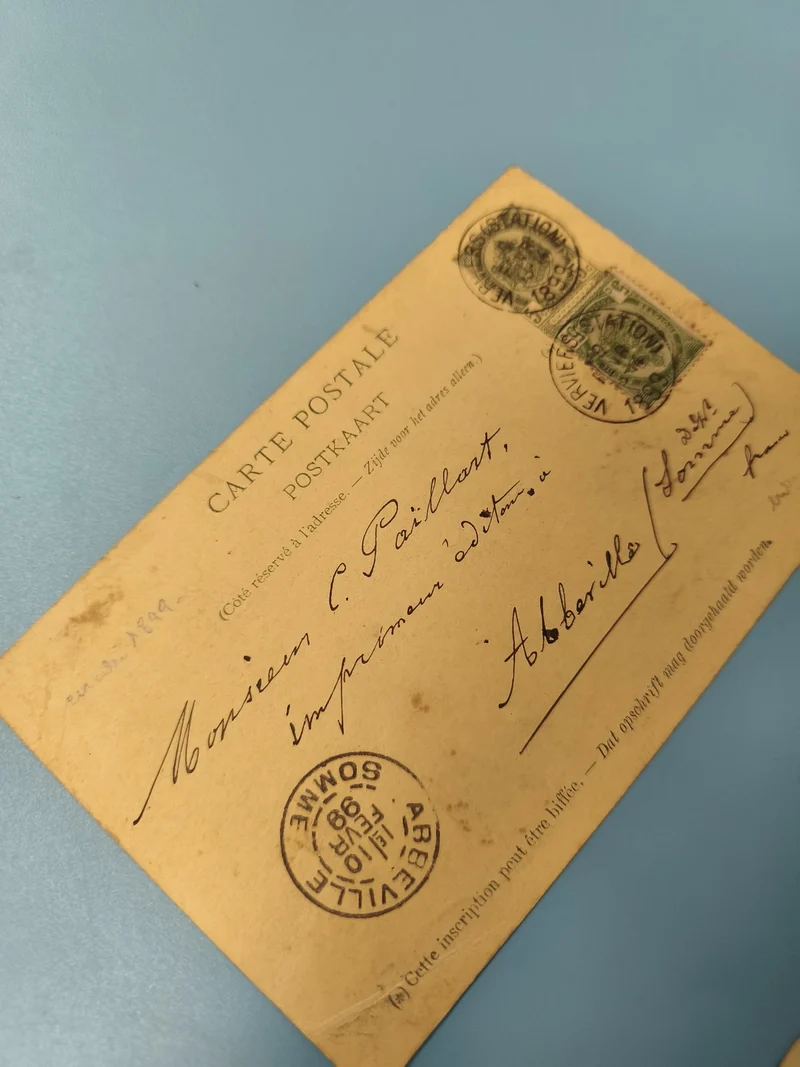 CARTE POSTALE
POSTKAART
(Côté réservé à l'adresse. — Zijde voor het adres alleen.)
VERVIERS (STATION)
1899
VERVIERS (STATION)
1899
Monsieur C. Paillart,
imprimeur éditeur, à
Abbeville (Somme)
1899
ABBEVILLE
SOMME
10
FEVR
99
(*) Cette inscription peut être biffée. — Dat opschrift mag doorgehaald worden.